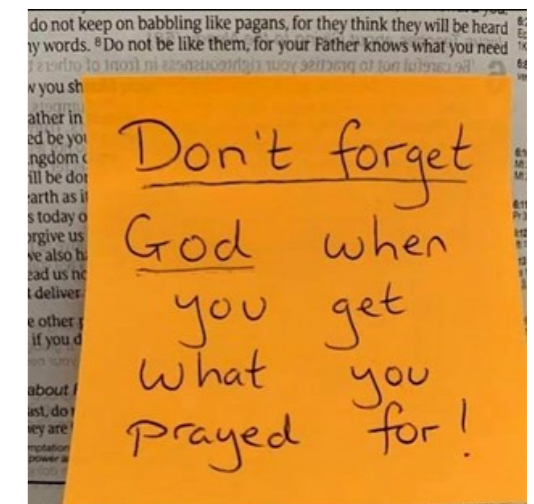 do not keep on babbling like pagans, for they think they will be heard
ny words. ⁸Do not be like them, for your Father knows what you need
w you sh
ather in
ed be you
ngdom
ill be do
earth as it
s today o
orgive us
ve also h
ead us no
t deliver
e other
if you d
about
ast, do
ey are
mptation
power a
Don't forget
God when
you get
what you
prayed for!